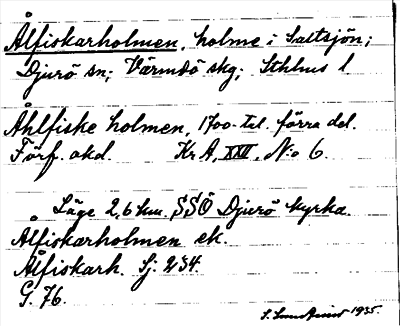 Ålfiskarholmen, holme i Saltsjön;
Djurö sn; Värmdö skg; Sthlms l
Åhlfiske holmen, 1700-tal. förra del.
Förf. okd. Kr A, XXII, N:o 6.
Läge 2,6 km. SSÖ Djurö kyrka.
Ålfiskarholmen ek.
Ålfiskarh. Sj: 234.
G. 76.
S. 1935.